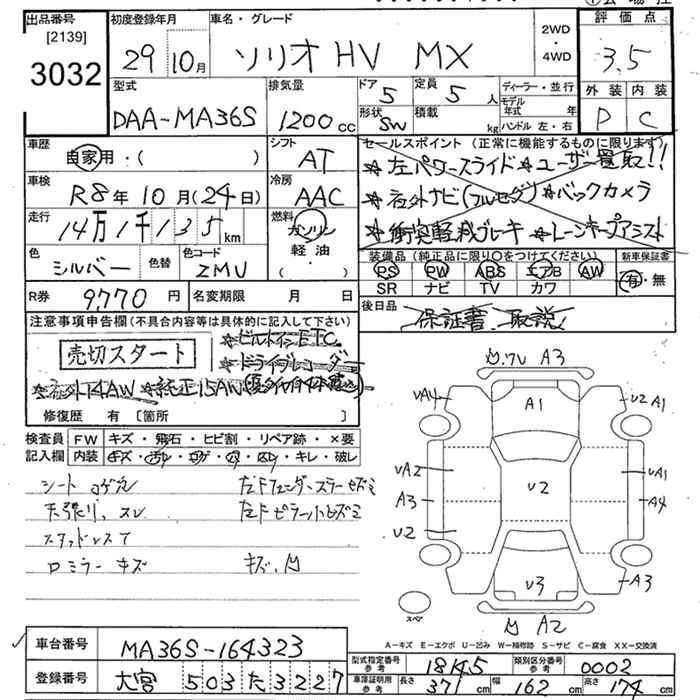 出品番号 初度登録年月 車名・グレード 2WD・4WD 評価点
[2139]
3032 29 10月 ソリオHV MX 3.5
型式 排気量 ドア 5 定員 5人 ディーラー・並行 外装 内装
DAA-MA36S 1200cc 形状 SW 積載 kg モデル年式 年 ハンドル 左・右 D C
車歴 シフト セールスポイント (正常に機能するものに限ります)
自家用・( ) AT ★左パワースライド★ユーザー買取!!
車検 R8年10月(24日) 冷房 AAC ★社外ナビ(フルセグ)★バックカメラ
走行 14万1千135km 燃料 ガソリン・軽油・( ) ★衝突軽減ブレーキ ★レーンキープアシスト
色 シルバー 色替 色コード ZMU 装備品 (純正品に限り○をつけてください) 新車保証書
PS PW ABS エアB AW 有・無
SR ナビ TV カワ
R券 9770円 名変期限 月 日 後日品
注意事項申告欄(不具合内容等は具体的に記入して下さい) 保証書 取説
売切スタート ★ビルトインETC
★ドライブレコーダー
★社外14AW ★純正15AW
修復歴 有 [箇所 ]
検査員記入欄 FW キズ・飛石・ヒビ割・リペア跡・×要
内装 キズ・汚レ・コゲ・穴・スレ・キレ・破レ
シート コゲ穴 左Fフェンダーズラーセズミ
天張り、スレ 左Fピラー
スタッドレス
ロミラー キズ キズ、凹
A3
VA4 A1 U2 A1
UA2 U2 UA1
A3 A4
U2
U3 A3
スペア 凹 A2
A-キズ E-エクボ U-凹み W-補修跡 S-サビ C-腐食 XX-交換済
車台番号 MA36S-164323 型式指定番号 参考 18145 類別区分番号 参考 0002
登録番号 大宮 503 た 3227 車庫証明用 参考 長さ 371cm 幅 162cm 高さ 174cm